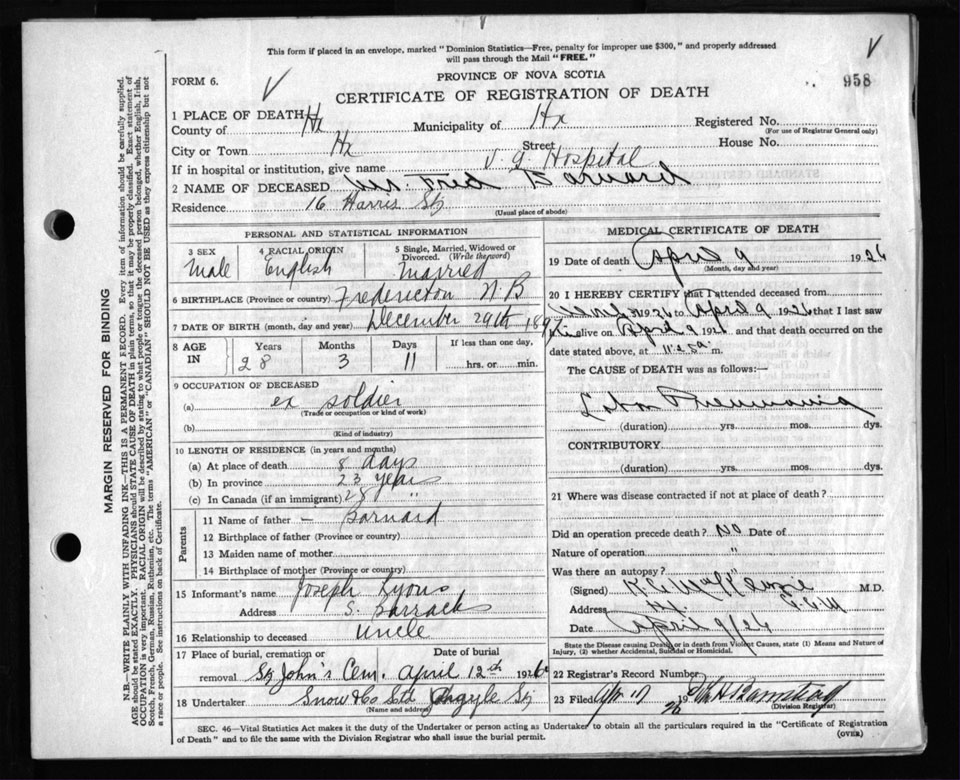 This form if placed in an envelope, marked "Dominion Statistics—Free, penalty for improper use $300," and properly addressed
will pass through the Mail "FREE."
PROVINCE OF NOVA SCOTIA
FORM 6.
958
CERTIFICATE OF REGISTRATION OF DEATH
1 PLACE OF DEATH Hx
County of Municipality of Hx Registered No.
(For use of Registrar General only)
City or Town Hx Street House No.
If in hospital or institution, give name V. G. Hospital
2 NAME OF DECEASED Mr. Fred Barnard
Residence 16 Harris St
(Usual place of abode)
PERSONAL AND STATISTICAL INFORMATION
3 SEX 4 RACIAL ORIGIN 5 Single, Married, Widowed or
Divorced. (Write the word)
Male English Married
6 BIRTHPLACE (Province or country) Fredericton N B
7 DATE OF BIRTH (month, day and year) December 29th 1897
8 AGE IN Years Months Days If less than one day,
28 3 11 hrs. or min.
9 OCCUPATION OF DECEASED
(a) ex soldier
(Trade or occupation or kind of work)
(b)
(Kind of industry)
10 LENGTH OF RESIDENCE (in years and months)
(a) At place of death 8 days
(b) In province 23 years
(c) In Canada (if an immigrant) 28 "
Parents
11 Name of father — Barnard
12 Birthplace of father (Province or country)
13 Maiden name of mother
14 Birthplace of mother (Province or country)
15 Informant's name Joseph Lyons
Address S. Barracks
16 Relationship to deceased Uncle
17 Place of burial, cremation or Date of burial
removal St John's Cem. April 12th 1926
18 Undertaker Snow & Co Ltd Argyle St
(Name and address)
MEDICAL CERTIFICATE OF DEATH
19 Date of death April 9 1926
(Month, day and year)
20 I HEREBY CERTIFY that I attended deceased from
1926 to April 9 1926 that I last saw
alive on April 9 1926 and that death occurred on
date stated above, at m.
The CAUSE of DEATH was as follows:—
Lobar Pneumonia
(duration) yrs. mos. dys.
CONTRIBUTORY
(duration) yrs. mos. dys.
21 Where was disease contracted if not at place of death?
Did an operation precede death? No Date of
Nature of operation "
Was there an autopsy?
(Signed) M.D.
Address
Date April 9/26
State the Disease causing Death or in death from Violent Causes, state (1) Means and Nature of
Injury, (2) whether Accidental, Suicidal or Homicidal.
22 Registrar's Record Number
23 Filed Apr 17 1926
(Division Registrar)
SEC. 46—Vital Statistics Act makes it the duty of the Undertaker or person acting as Undertaker to obtain all the particulars required in the "Certificate of Registration
of Death" and to file the same with the Division Registrar who shall issue the burial permit. (OVER)
MARGIN RESERVED FOR BINDING
N.B.—WRITE PLAINLY WITH UNFADING INK—THIS IS A PERMANENT RECORD. Every item of information should be carefully supplied.
AGE should be stated EXACTLY. PHYSICIANS should STATE CAUSE OF DEATH in plain terms, so that it may be properly classified. Exact statement of
OCCUPATION is very important. RACIAL ORIGIN will be described by stating to what people or tongue the deceased person belonged, whether English, Irish,
Scotch, French, German, Russian, Ruthenian, etc. The terms "AMERICAN" or "CANADIAN" SHOULD NOT BE USED as they express citizenship but not
a race or people. See instructions on back of Certificate.